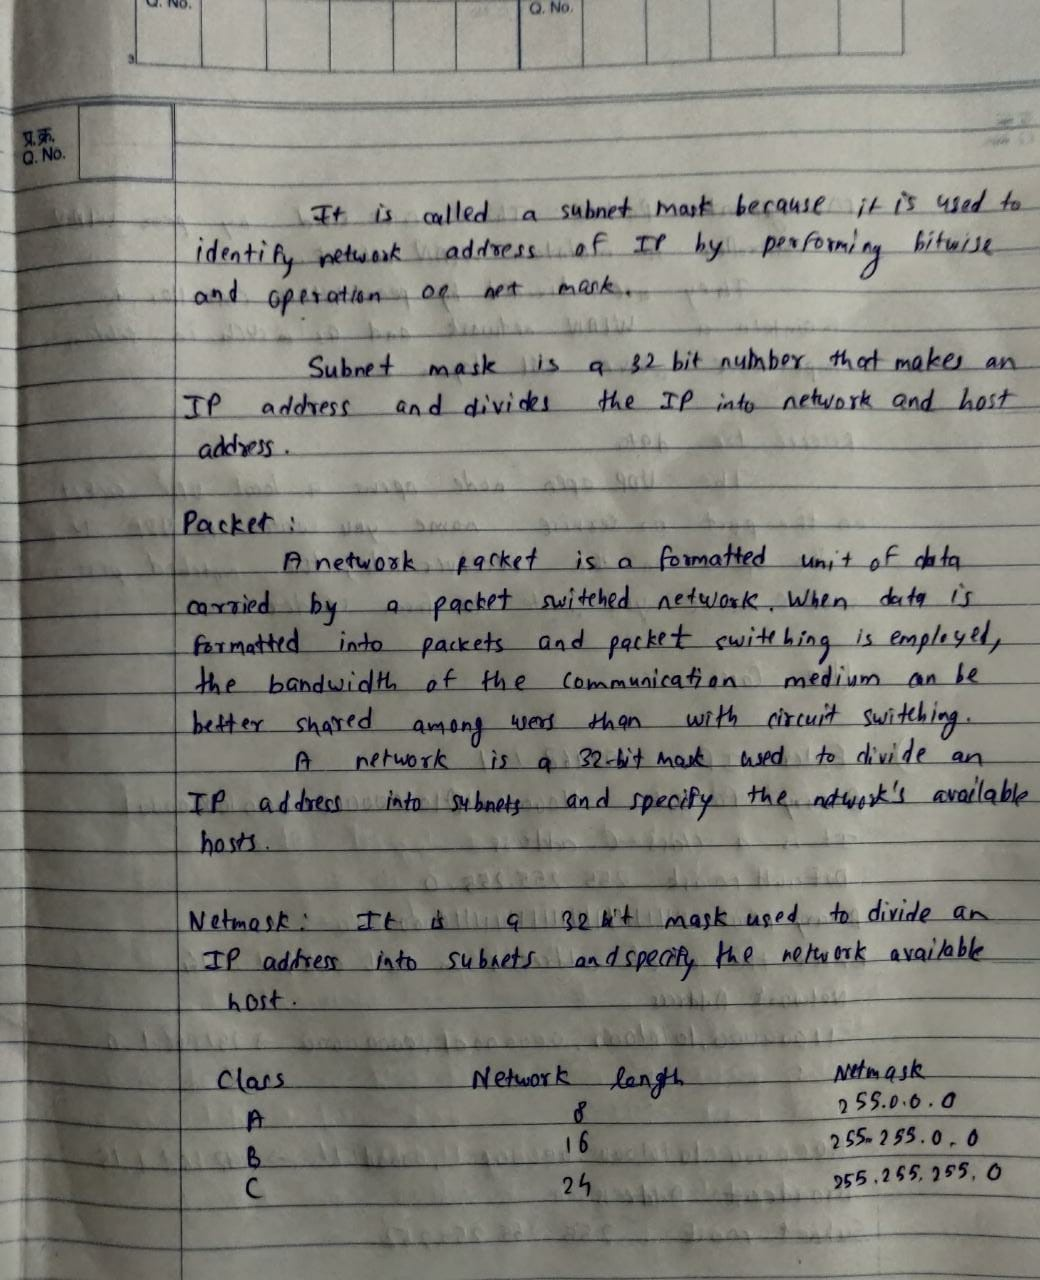 Q. No.
Q. No.
प्र.क्र.
Q. No.
It is called a subnet mask because it is used to
identify network address of IP by performing bitwise
and operation on net mask.
Subnet mask is a 32 bit number that makes an
IP address and divides the IP into network and host
address.
Packet :
A network packet is a formatted unit of data
carried by a packet switched network. When data is
formatted into packets and packet switching is employed,
the bandwidth of the communication medium can be
better shared among users than with circuit switching.
A network is a 32-bit mask used to divide an
IP address into subnets and specify the network's available
hosts.
Netmask: It is a 32 bit mask used to divide an
IP address into subnets and specify the network available
host.
Class Network length Netmask
A 8 255.0.0.0
B 16 255.255.0.0
C 24 255.255.255.0